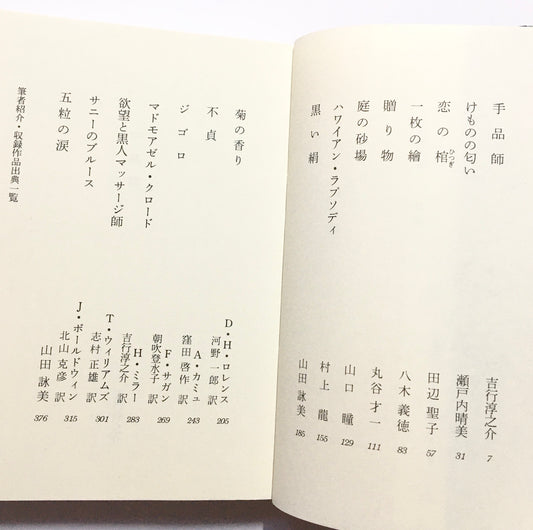 手品師 吉行淳之介 7
けものの匂い 瀬戸内晴美 31
恋の棺 ひつぎ 田辺聖子 57
一枚の繪 八木義徳 83
贈り物 丸谷才一 111
庭の砂場 山口瞳 129
ハワイアン・ラプソディ 村上龍 155
黒い絹 山田詠美 185
菊の香り D・H・ロレンス 河野一郎 訳 205
不貞 A・カミュ 窪田啓作 訳 243
ジゴロ F・サガン 朝吹登水子 訳 269
マドモアゼル・クロード H・ミラー 吉行淳之介 訳 283
欲望と黒人マッサージ師 T・ウィリアムズ 志村正雄 訳 301
サニーのブルース J・ボールドウィン 北山克彦 訳 315
五粒の涙 山田詠美 376
筆者紹介・収録作品出典一覧